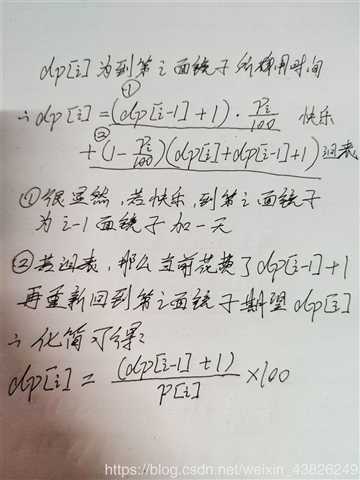 dp[i]为到第i面镜子所择用时间
①
∴dp[i]=(dp[i-1]+1)·Pi/100 快乐
②
+(1-Pi/100)(dp[i]+dp[i-1]+1)沮丧
①很显然,若快乐,到第i面镜子
为i-1面镜子加一天
②若沮丧,那么当前花费了dp[i-1]+1
再重新回到第i面镜子期望dp[i]
∴化简可得:
dp[i]=(dp[i-1]+1)/P[i]×100
https://blog.csdn.net/weixin_43826249